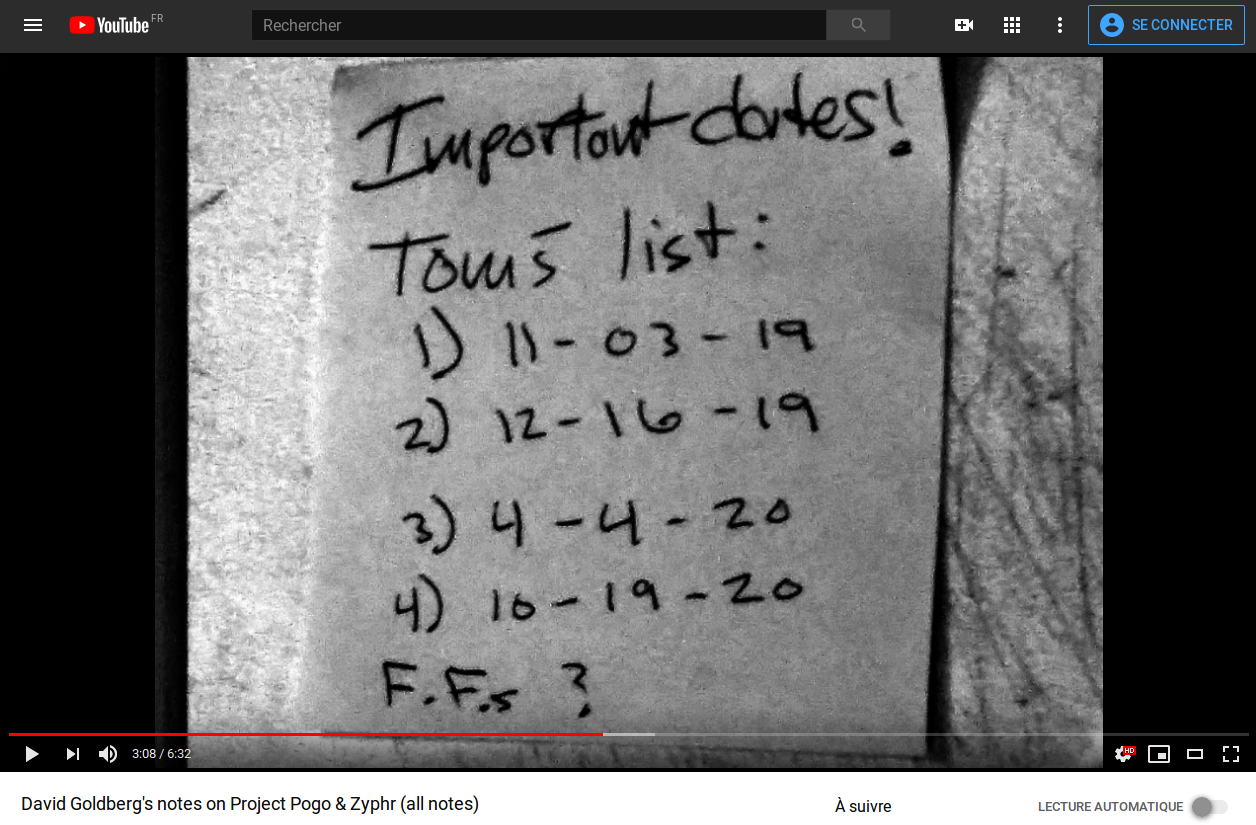 YouTube FR
Rechercher
SE CONNECTER
Important dates!
Tom's list:
1) 11-03-19
2) 12-16-19
3) 4-4-20
4) 10-19-20
F.F.s ?
3:08 / 6:32
HD
David Goldberg's notes on Project Pogo & Zyphr (all notes)
À suivre
LECTURE AUTOMATIQUE